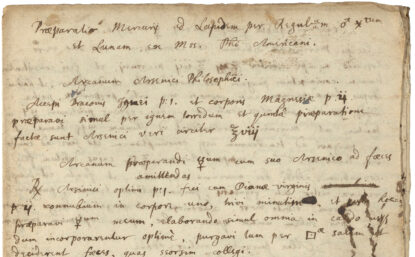 Præparatio Mercurij ad Lapidem per Regulum
et Lunam ex Mss. Phi Americani.
Arcanum Arsenici Philosophici.
Accipi Draconis ignei p.1. et corporis Magnesiæ p ij
præparavi simul per ignem torridum et quintâ præparatione
facta sunt Arsenici veri circiter ℥viij
Arcanum præparandi ☿um cum suo Arsenico ad fæces
amittendas
℞ Arsenici optimi p.1. feci cum Dianæ virginis
p ij connubium in corpus unum, trivi minutim et
præparavi ☿um meum, elaborando simul omnia in
dum incorporarentur optimè, purgavi tum per salem
deciderent fæces, quas seorsim collegi.